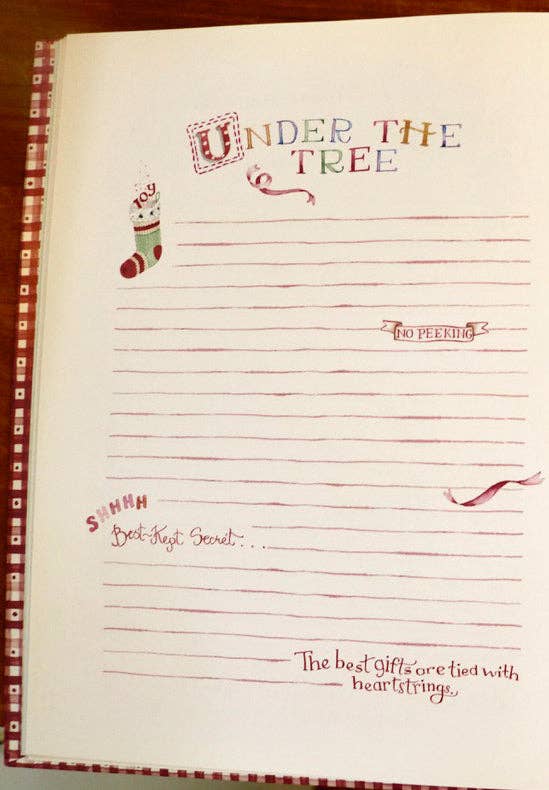 UNDER THE
TREE
JOY
NO PEEKING
SHHHH
Best-Kept Secret...
The best gifts are tied with
heartstrings.